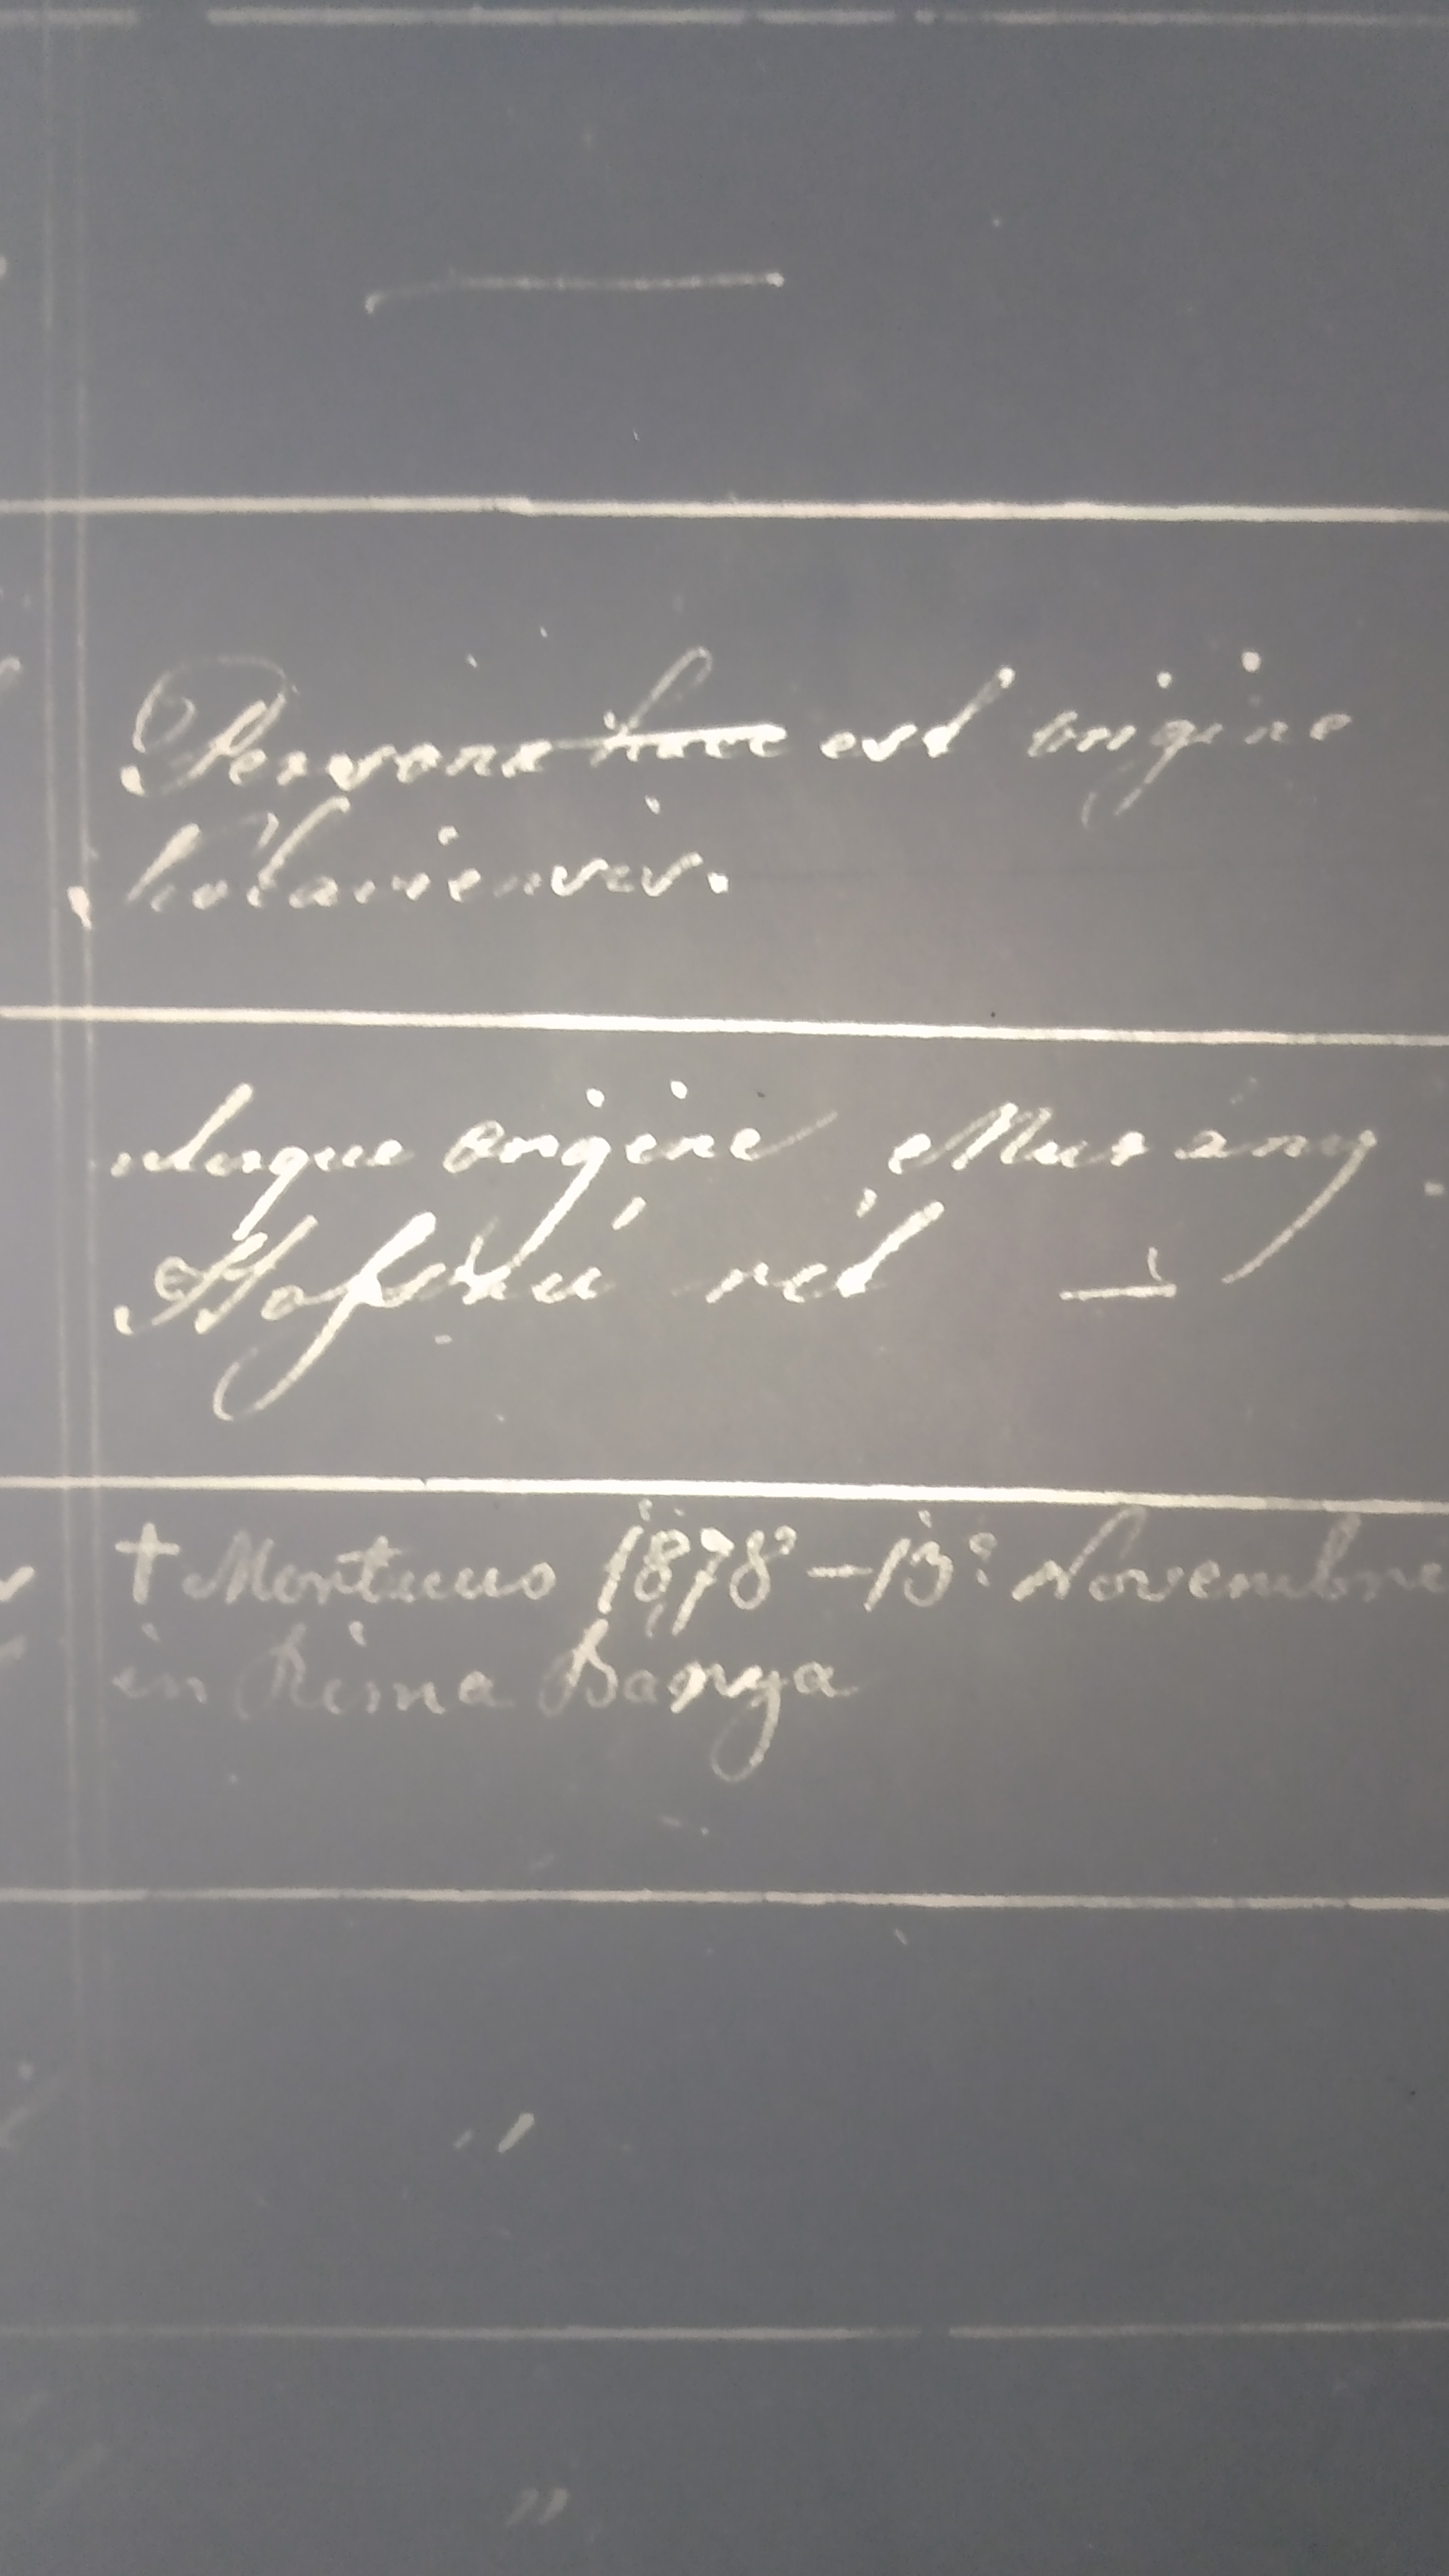 Persona haec est origine
Kolaviensis.
usque origine Murány
Hoſszú rét
† Mortuus 1878 – 13ª Novembre
in Rima Banya
"
"